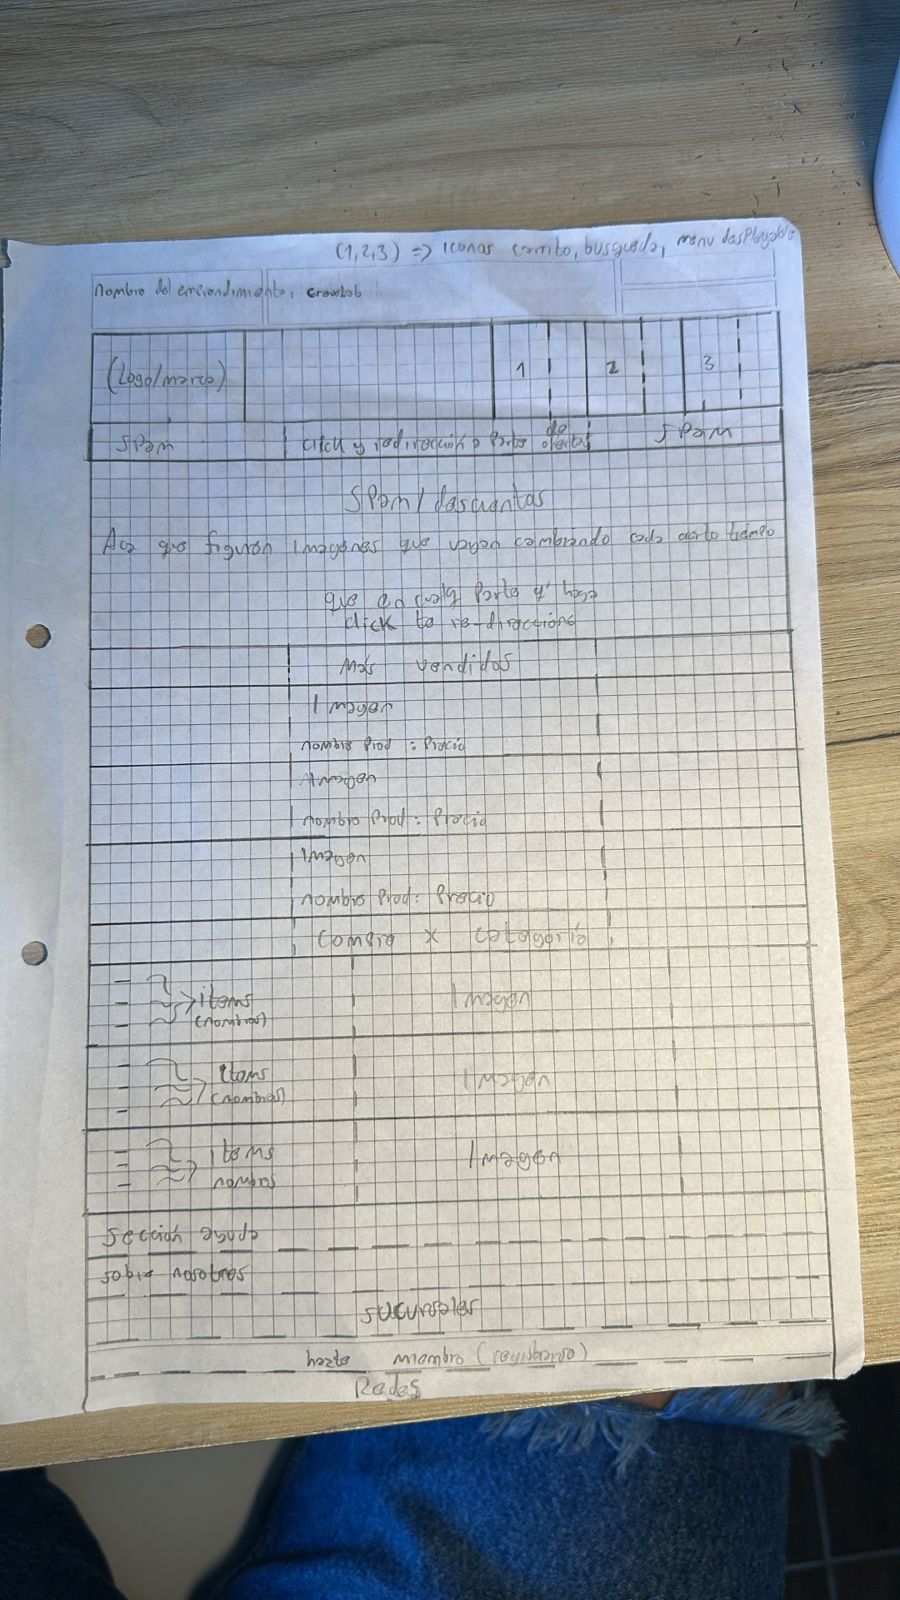 (1,2,3) => Iconos carrito, busqueda, menu desplegable
nombre del emprendimiento: crowlab
(Logo/marca) 1 2 3
SPam click y redirección a Parte de ofertas SPam
SPam / descuentos
Acá que figuren imagenes que vayan cambiando cada cierto tiempo
que en cualq parte q' haga
click te re-direccione
Más vendidos
Imagen
nombre Prod : Precio
Imagen
nombre Prod : Precio
Imagen
nombre Prod : Precio
Compra x categoría
items Imagen
(nombres)
Items Imagen
(nombres)
items Imagen
nombres
Sección ayuda
sobre nosotros
sucursales
hazte miembro (registrarse)
Redes